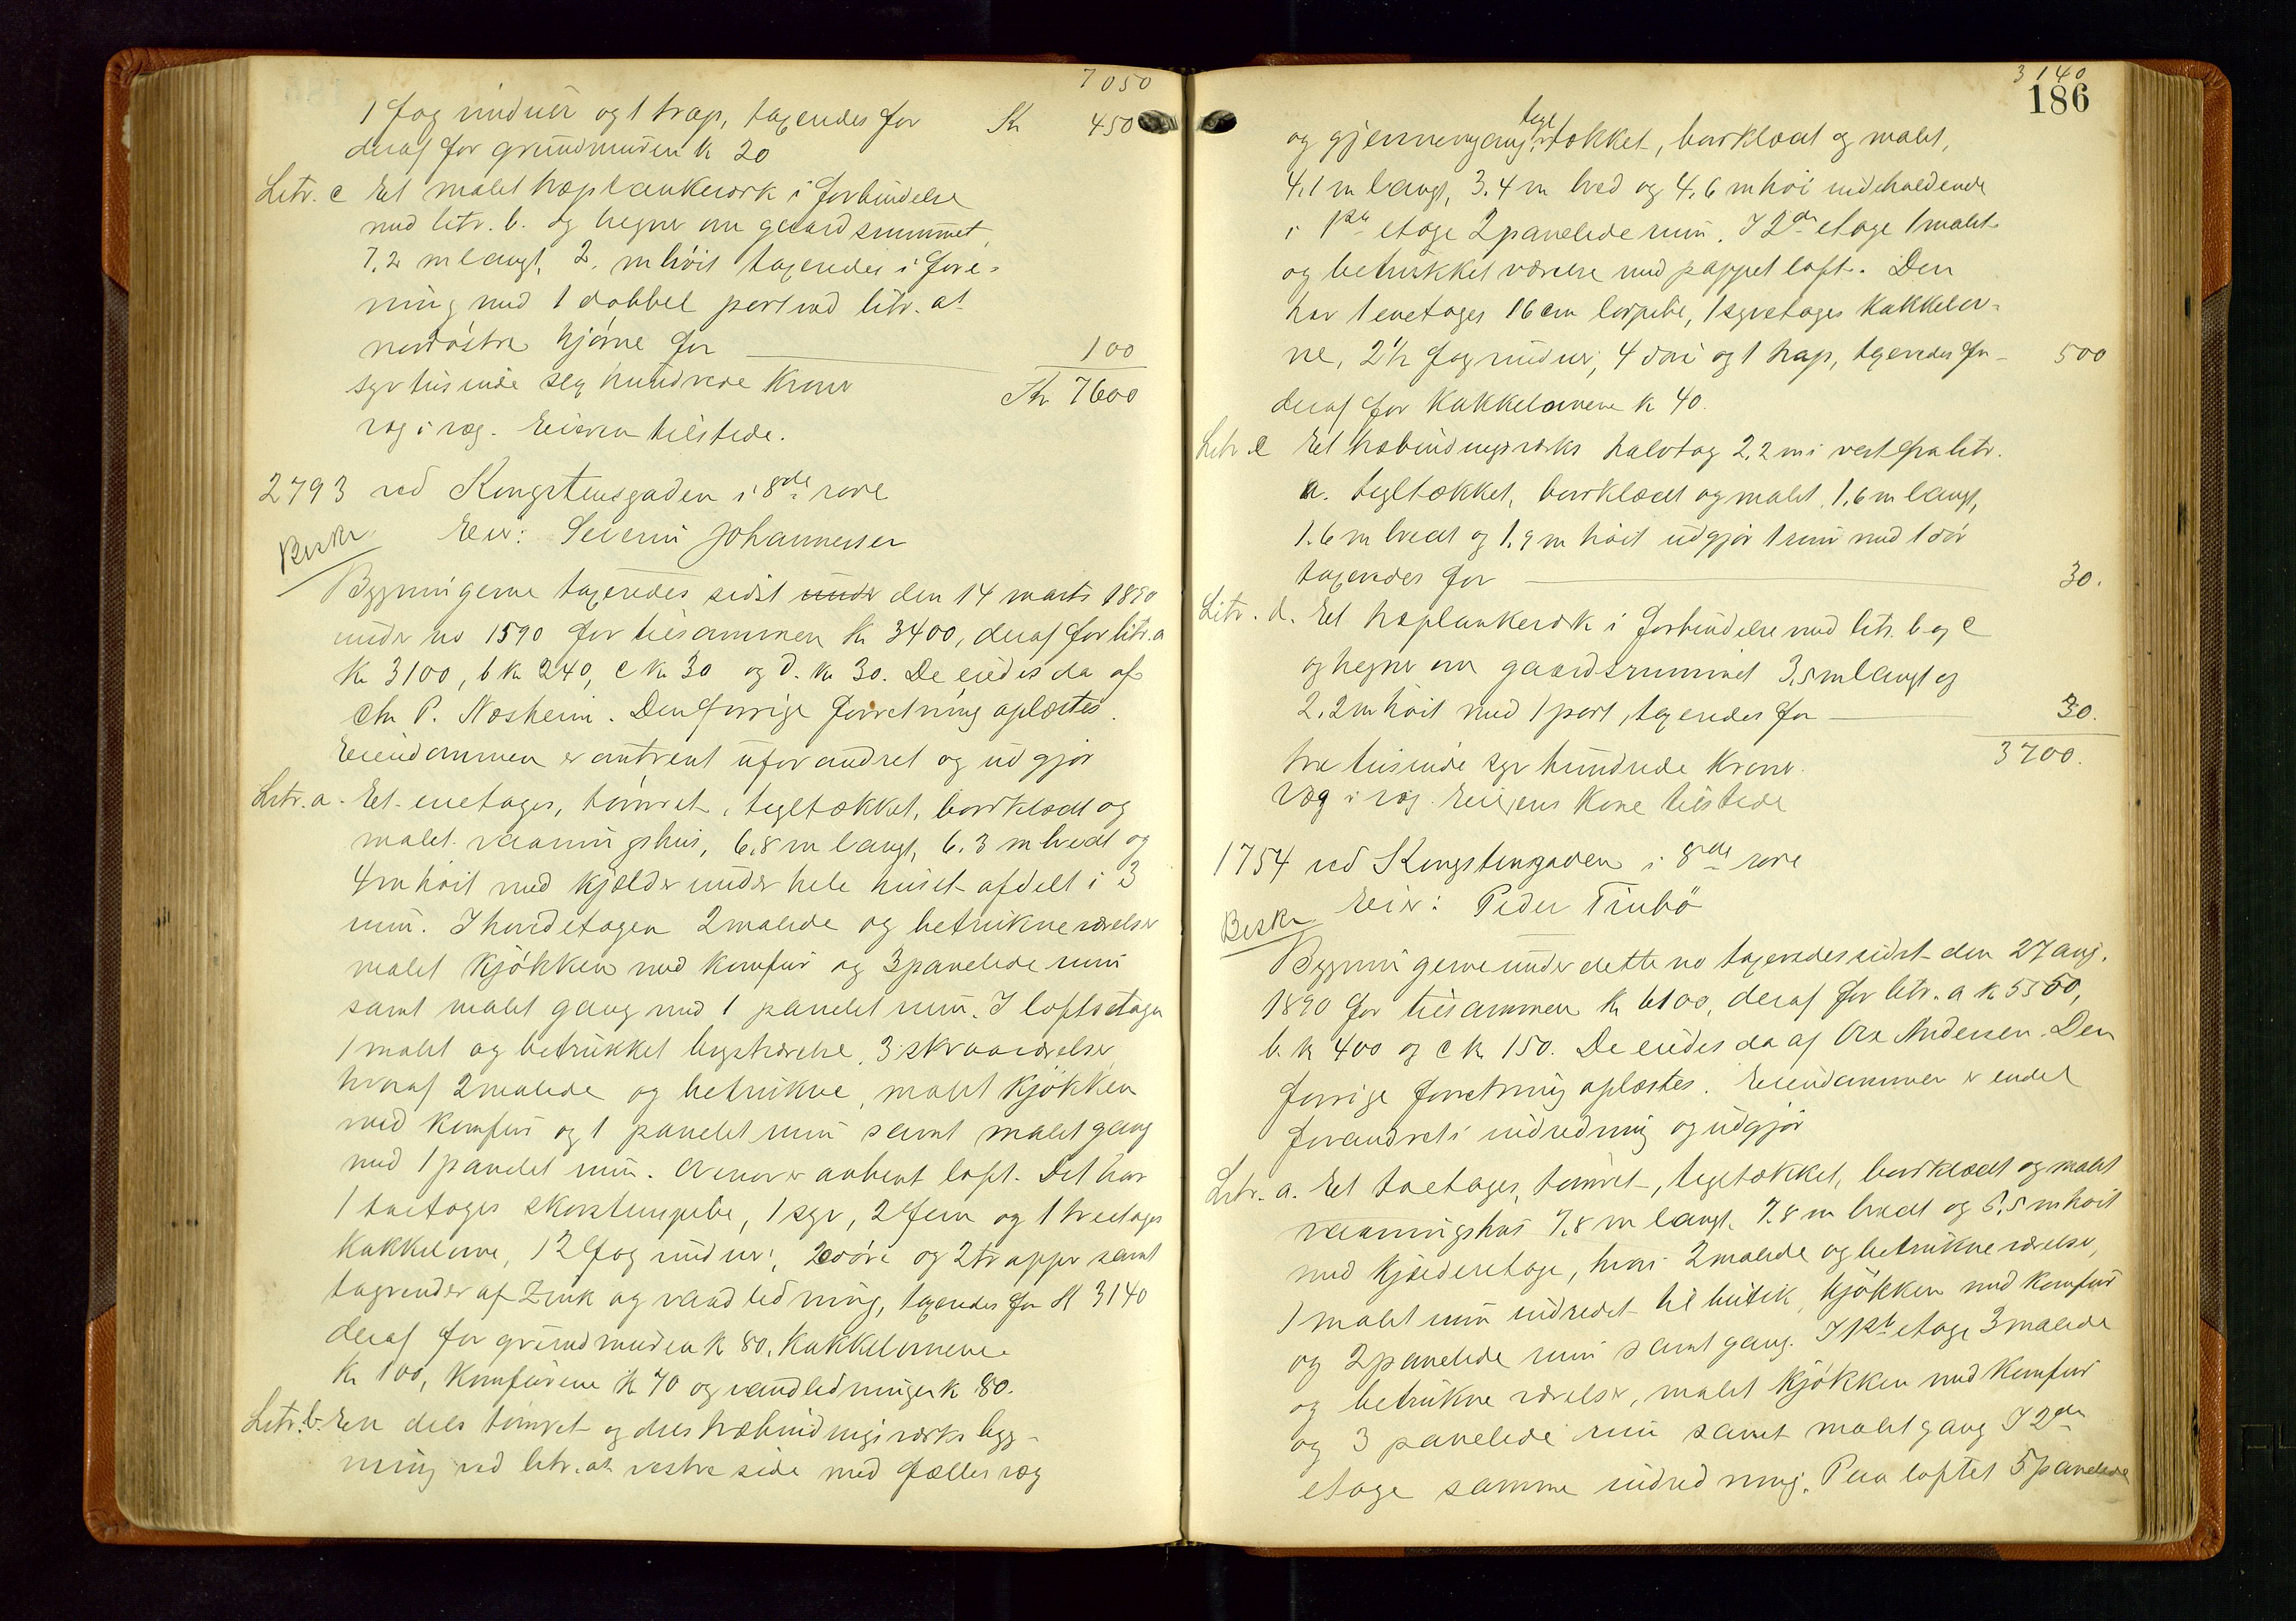 7050
1 fag vinduer og 1 trap, taxeredes for Kr 450
deraf for grundmuren k 20
Litr. c Et malet træplankeværk i forbindelse
med litr. b. og hegner om gaardsrummet,
7,2 m langt, 2. m høit taxeredes i fore-
ning med 1 dobbel port ved litr. a's
nordøstre hjørne for 100
syv tusinde sex hundrede Kroner Kr 7600
væg i væg. Eieren tilstede.
2793 ved Kongstensgaden i 8de rode
Beskr. Eier: Severin Johannessen
Bygningerne taxeredes sidst under den 14 marts 1890
under no 1590 for tilsammen Kr 3400, deraf for litr. a
Kr 3100, b kr 240, c kr 30 og d. kr 30. De eiedes da af
Chr P. Næsheim. Den forrige forretning oplæstes.
Eiendommen er omtrent uforandret og udgjør
Litr. a. Et enetages, tømret, tegltækket, bordklædt og
malet vaaningshus, 6,8 m langt, 6.3 m bredt og
4 m høit med kjelder under hele huset afdelt i 3
rum. I hovedetagen 2 malede og betrukne værelser
malet kjøkken med komfur og 3 panelede rum
samt malet gang med 1 panelet rum. I loftsetagen
1 malet og betrukket kvistværelse, 3 skraaværelser,
hvoraf 2 malede og betrukne, malet kjøkken
med komfur og 1 panelet rum samt malet gang
med 1 panelet rum. Ovenover aabent loft. Det har
1 toetages skorstenspibe, 1 syv, 2 fem og 1 treetages
kakkelovne, 12 fag vinduer, 20 døre og 2 trapper samt
tagrender af Zink og vandledning, taxeredes for Kr 3140
deraf for grundmuren k 80, Kakkelovnene
Kr 100, Komfurene Kr 70 og vandledningen k 80.
Litr. b. En dels tømret og dels træbindingsværks byg-
ning ved litr. a's vestre side med fælles væg
3140
186
tegl
og gjennemgang, tækket, bordklædt og malet,
4,1 m langt, 3.4 m bred og 4,6 m høi indeholdende
i 1ste etage 2 panelede rum. I 2den etage 1 malet
og betrukket værelse med pappet loft. Den
har 1 enetages 16 cm lerpibe, 1 syvetages Kakkelov-
ne, 2½ fag vinduer, 4 døre og 1 trap, taxeredes for 500
deraf for Kakkelovnene k 40.
Litr. c Et træbindingsværks halvtag 2,2 m i vest fra litr.
a. tegltækket, bordklædt og malet, 1,6 m langt,
1.6 m bredt og 1.9 m høit udgjør 1 rum med 1 dør
taxeredes for 30.
Litr. d. Et træplankeværk i forbindelse med litr. b og c
og hegner om gaardsrummet 3,5 m langt og
2.2 m høit med 1 port, taxeredes for 30.
tre tusinde syv hundrede Kroner. 3700.
væg i væg. Eierens Kone tilstede
1754 ved Kongstensgaden i 8de rode
Beskr Eier: Peder Timbö
Bygningerne under dette no taxeredes sidst den 27 aug.
1890 for tilsammen Kr 6100, deraf for litr. a k 5550,
b. k 400 og c k. 150. De eiedes da af Ole Andersen. Den
forrige forretning oplæstes. Eiendommen er endel
forandret i indredning og udgjør
Litr. a. Et toetages, tømret, tegltækket, bordklædt og malet
vaaningshus 7,8 m langt, 7.8 m bredt og 6,5 m høit
med kjælderetage, hvori 2 malede og betrukne værelser,
1 malet rum indredet til butik, kjøkken med komfur
og 2 panelede rum samt gang. I 1ste etage 3 malede
og betrukne værelser, malet kjøkken med komfur
og 3 panelede rum samt malet gang I 2den
etage samme indredning. Paa loftet 5 panelede